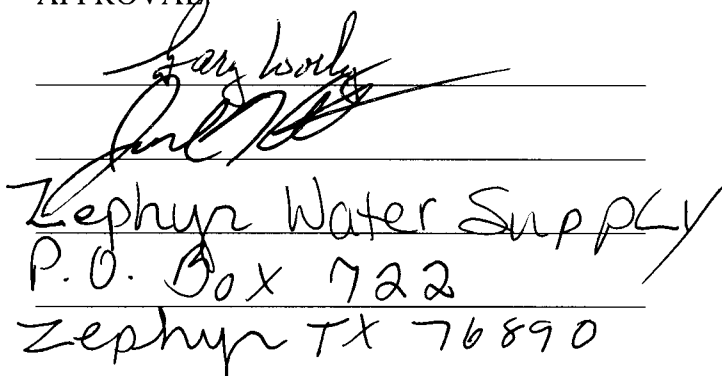 APPROVAL:
Gary Worley
Zephyr Water Supply
P.O. Box 722
Zephyr TX 76890